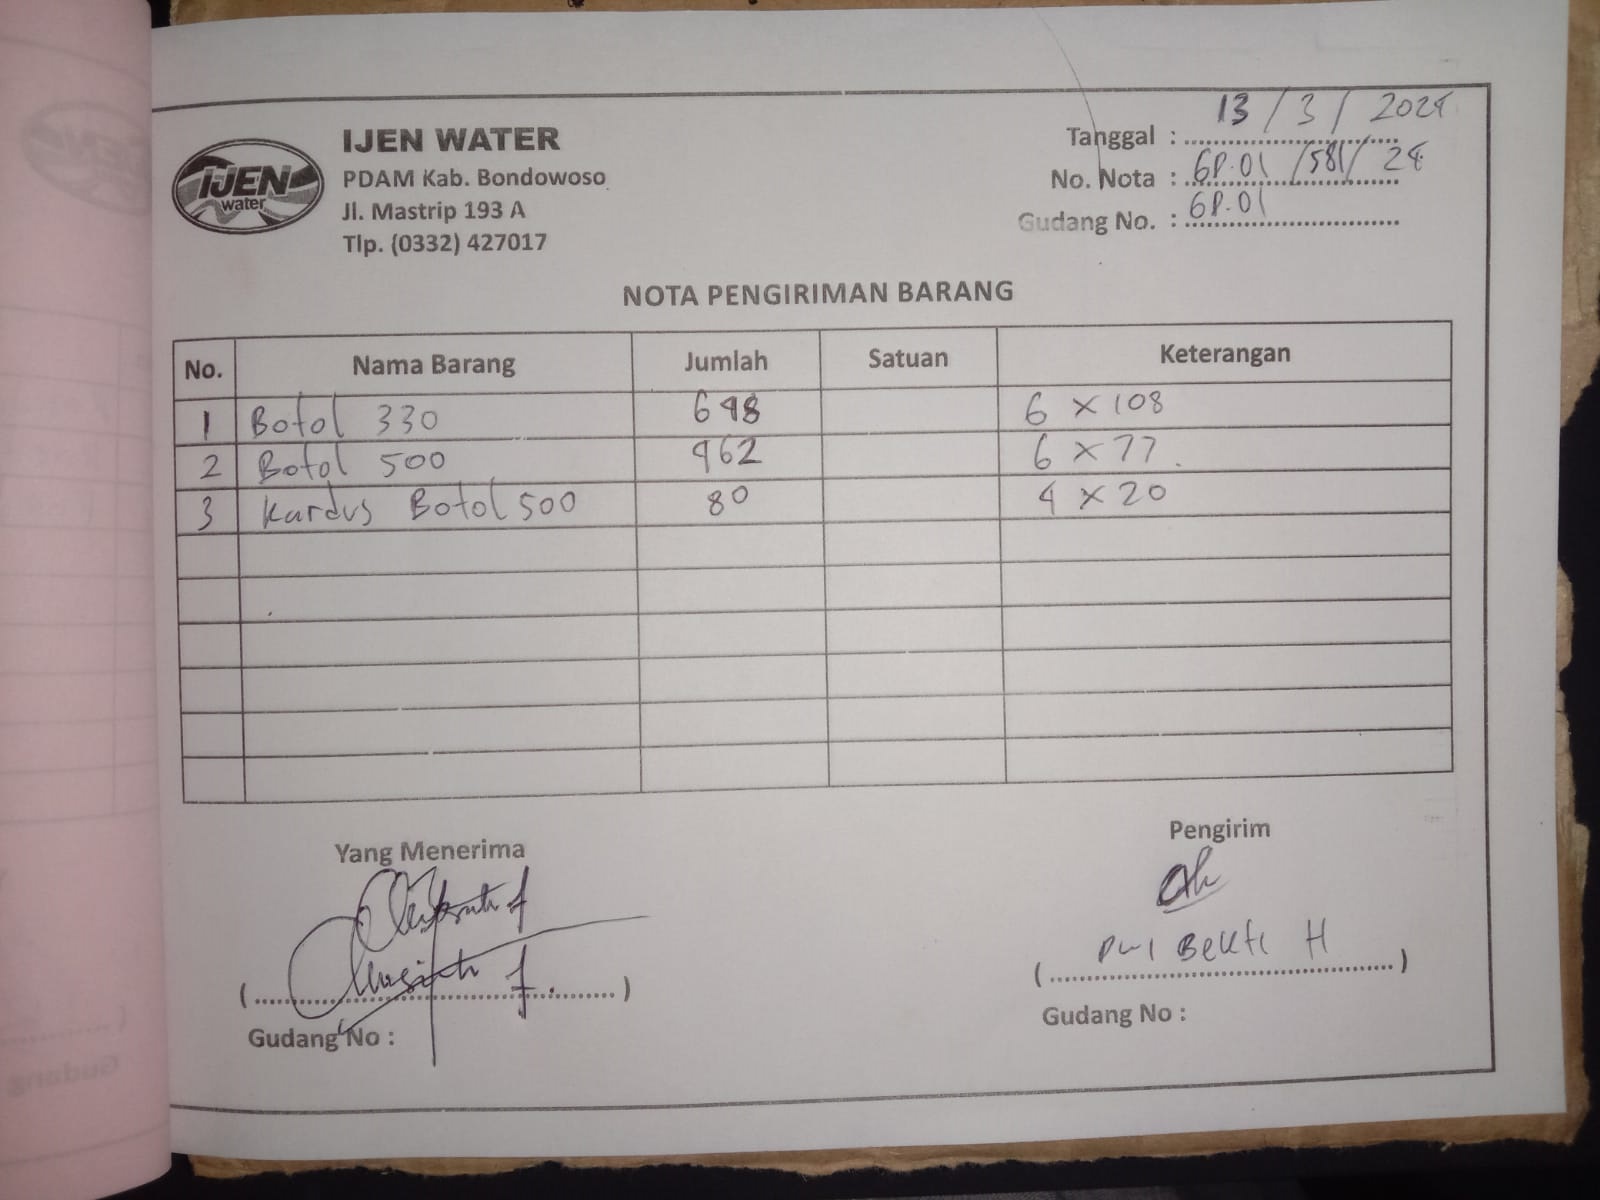 IJEN WATER
PDAM Kab. Bondowoso
Jl. Mastrip 193 A
Tlp. (0332) 427017
IJEN
water
Tanggal : 13 / 3 / 2024
No. Nota : GP.01 /581/ 24
Gudang No. : GP.01
NOTA PENGIRIMAN BARANG
No. Nama Barang Jumlah Satuan Keterangan
1 Botol 330 648 6 x 108
2 Botol 500 462 6 x 77
3 Kardus Botol 500 80 4 x 20
Yang Menerima
Gudang No :
Pengirim
Dwi Bekti H
Gudang No :